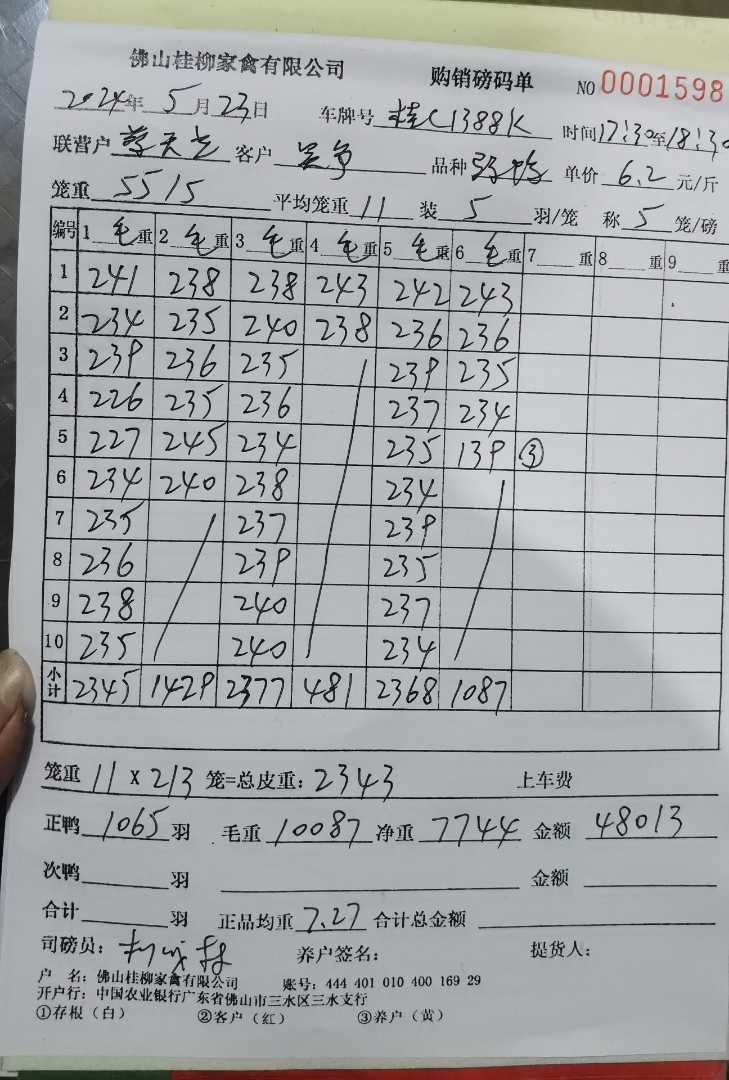 佛山桂柳家禽有限公司 购销磅码单 NO 0001598
2024年 5 月 23 日 车牌号 桂C1388K 时间 17:30 至 18:30
联营户 客户 品种 单价 6.2 元/斤
笼重 5515 平均笼重 11 装 5 羽/笼 称 5 笼/磅
编号 1 毛重 2 毛重 3 毛重 4 毛重 5 毛重 6 毛重 7 重 8 重 9 重
1 241 238 238 243 242 243
2 234 235 240 238 236 236
3 239 236 235 239 235
4 226 235 236 237 234
5 227 245 234 235 139 ③
6 234 240 238 234
7 235 237 239
8 236 239 235
9 238 240 237
10 235 240 234
小计 2345 1429 2377 481 2368 1087
笼重 11 X 213 笼=总皮重: 2343 上车费
正鸭 1065 羽 毛重 10087 净重 7744 金额 48013
次鸭 羽 金额
合计 羽 正品均重 7.27 合计总金额
司磅员: 养户签名: 提货人:
户 名: 佛山桂柳家禽有限公司 账号: 444 401 010 400 169 29
开户行: 中国农业银行广东省佛山市三水区三水支行
①存根（白） ②客户（红） ③养户（黄）